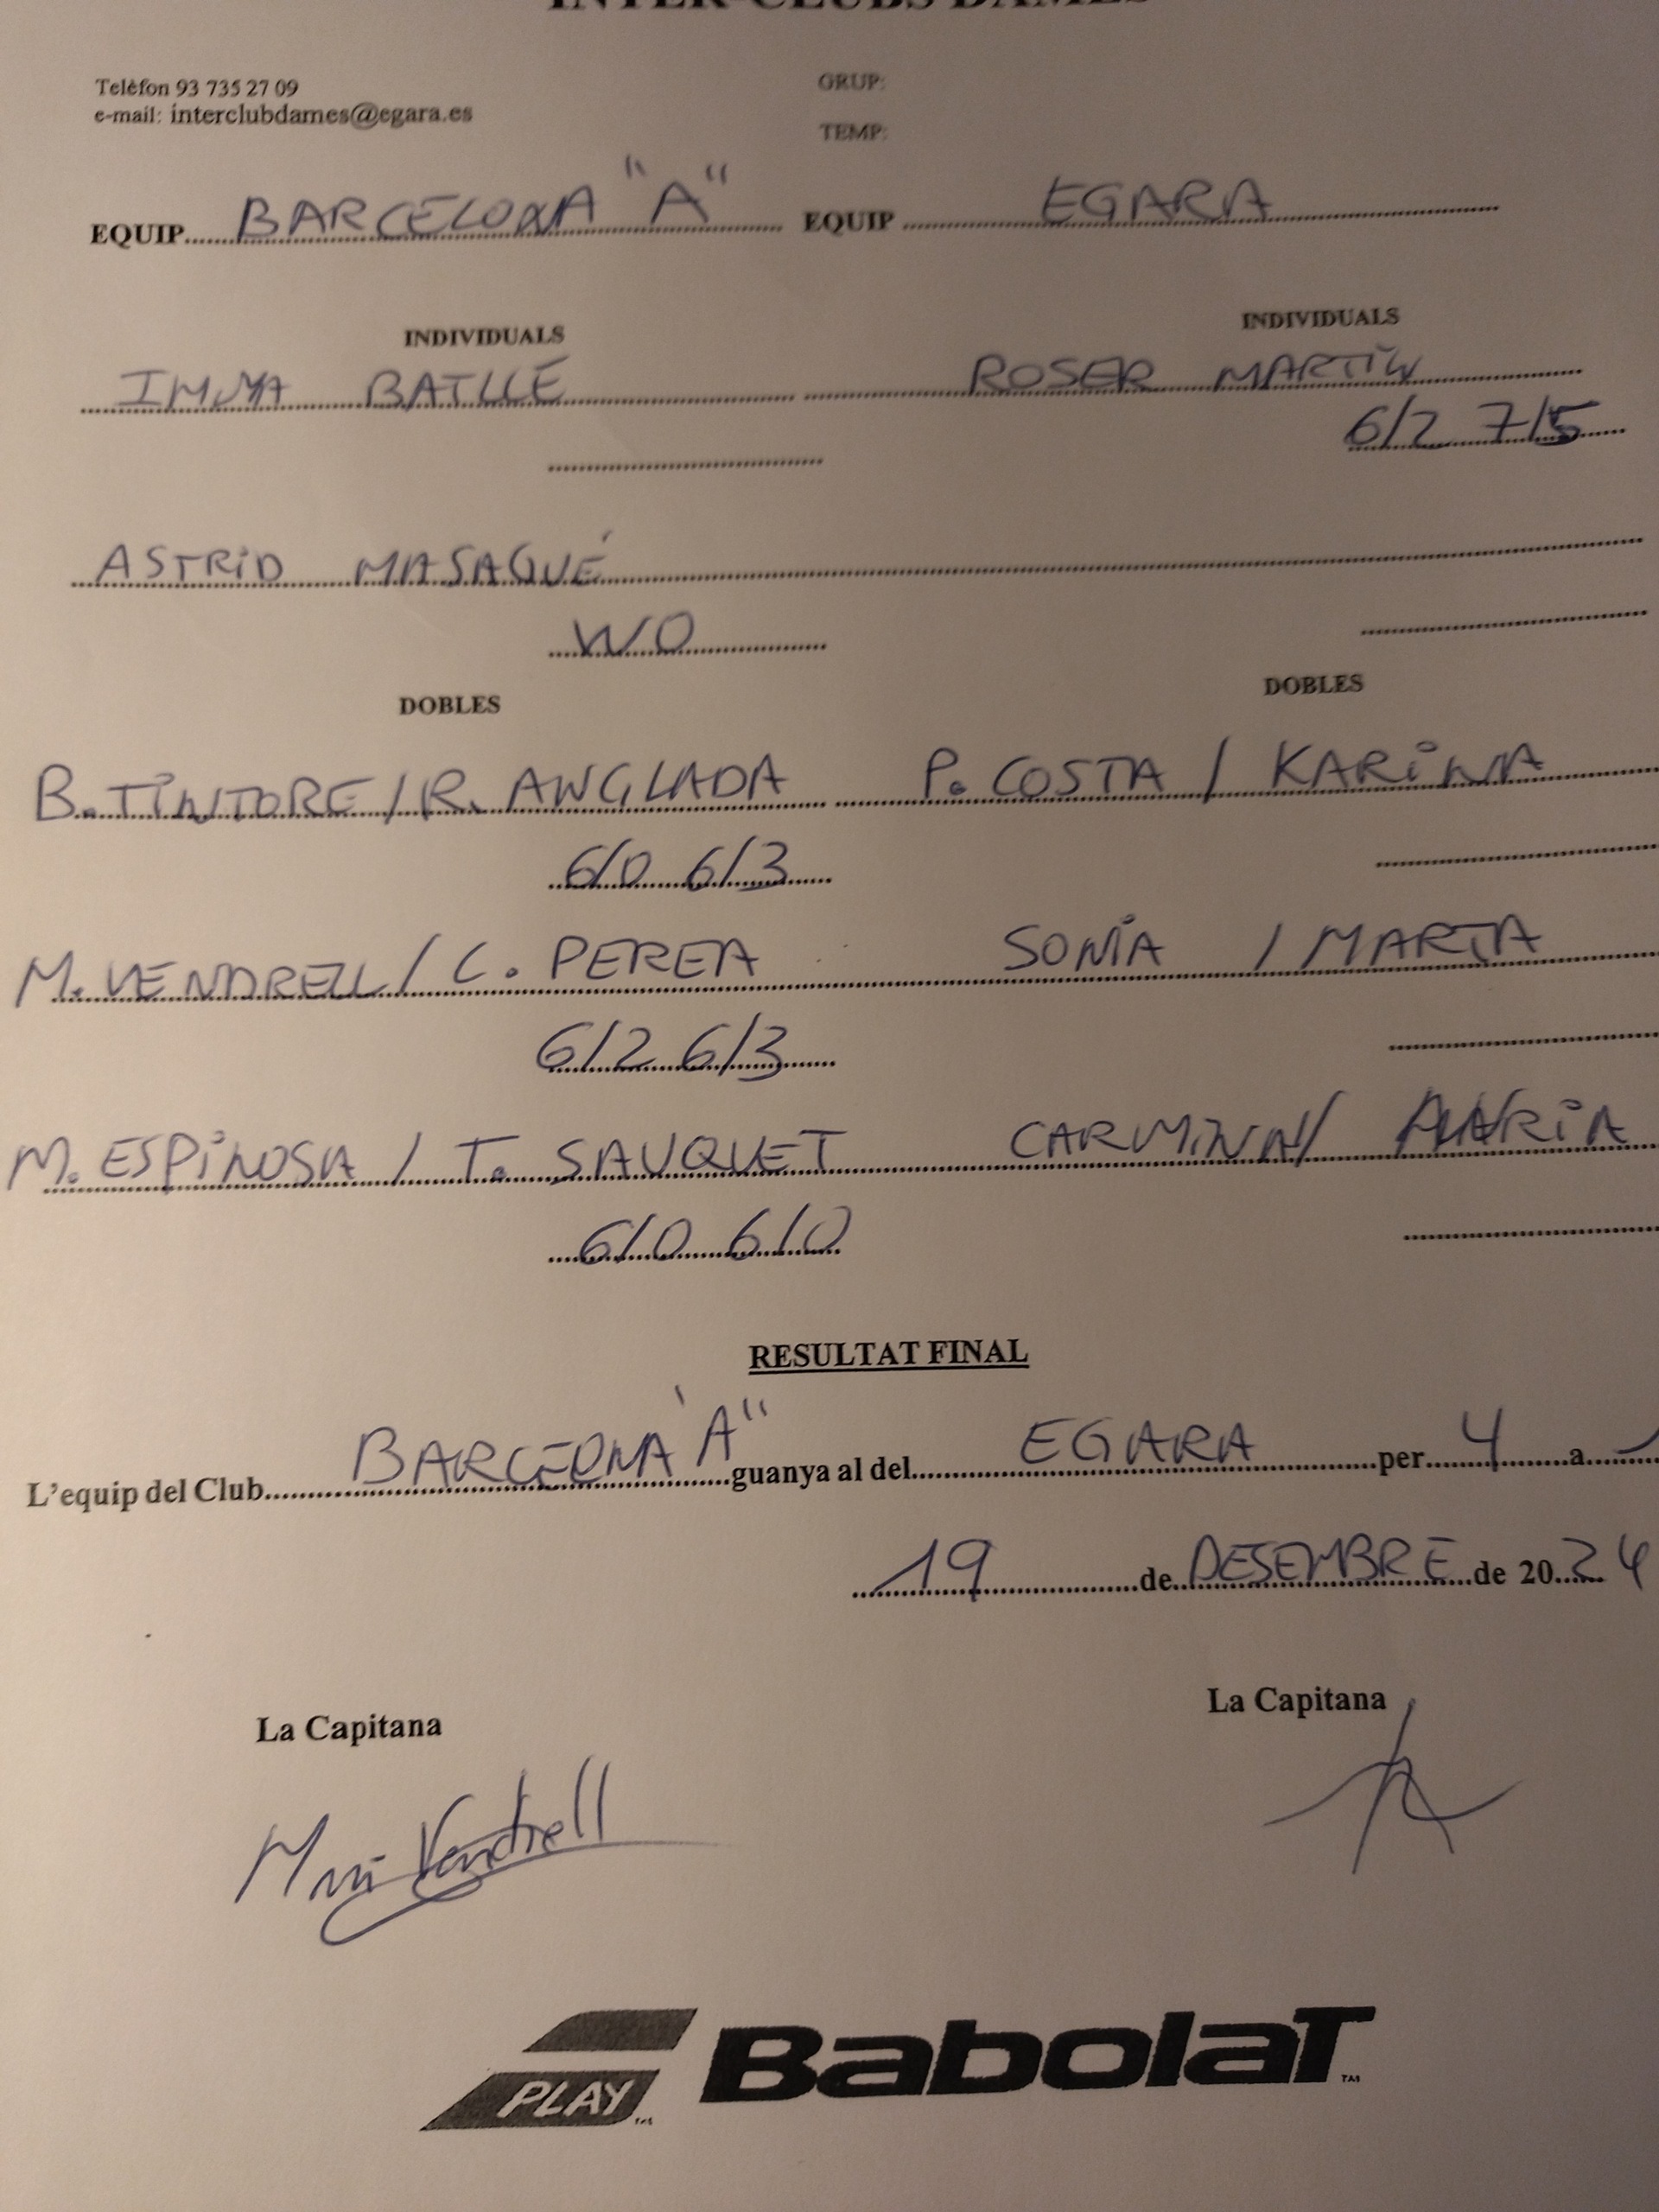 INTER-CLUBS DAMES
Telèfon 93 735 27 09
e-mail: interclubdames@egara.es
GRUP:
TEMP:
EQUIP BARCELONA "A" EQUIP EGARA
INDIVIDUALS INDIVIDUALS
IMMA BATLLE ROSER MARTIN
6/2 7/5
ASTRID MASAGUÉ
WO
DOBLES DOBLES
B. TINTORE / R. ANGLADA P. COSTA / KARINA
6/0 6/3
M. VENDRELL / C. PEREA SONIA / MARTA
6/2 6/3
M. ESPINOSA / T. SAUQUET CARMINA /
6/0 6/0
RESULTAT FINAL
L'equip del Club BARCELONA "A" guanya al del EGARA per 4 a
19 de DESEMBRE de 2024
La Capitana La Capitana
Vendrell
PLAY™ BabolaT™